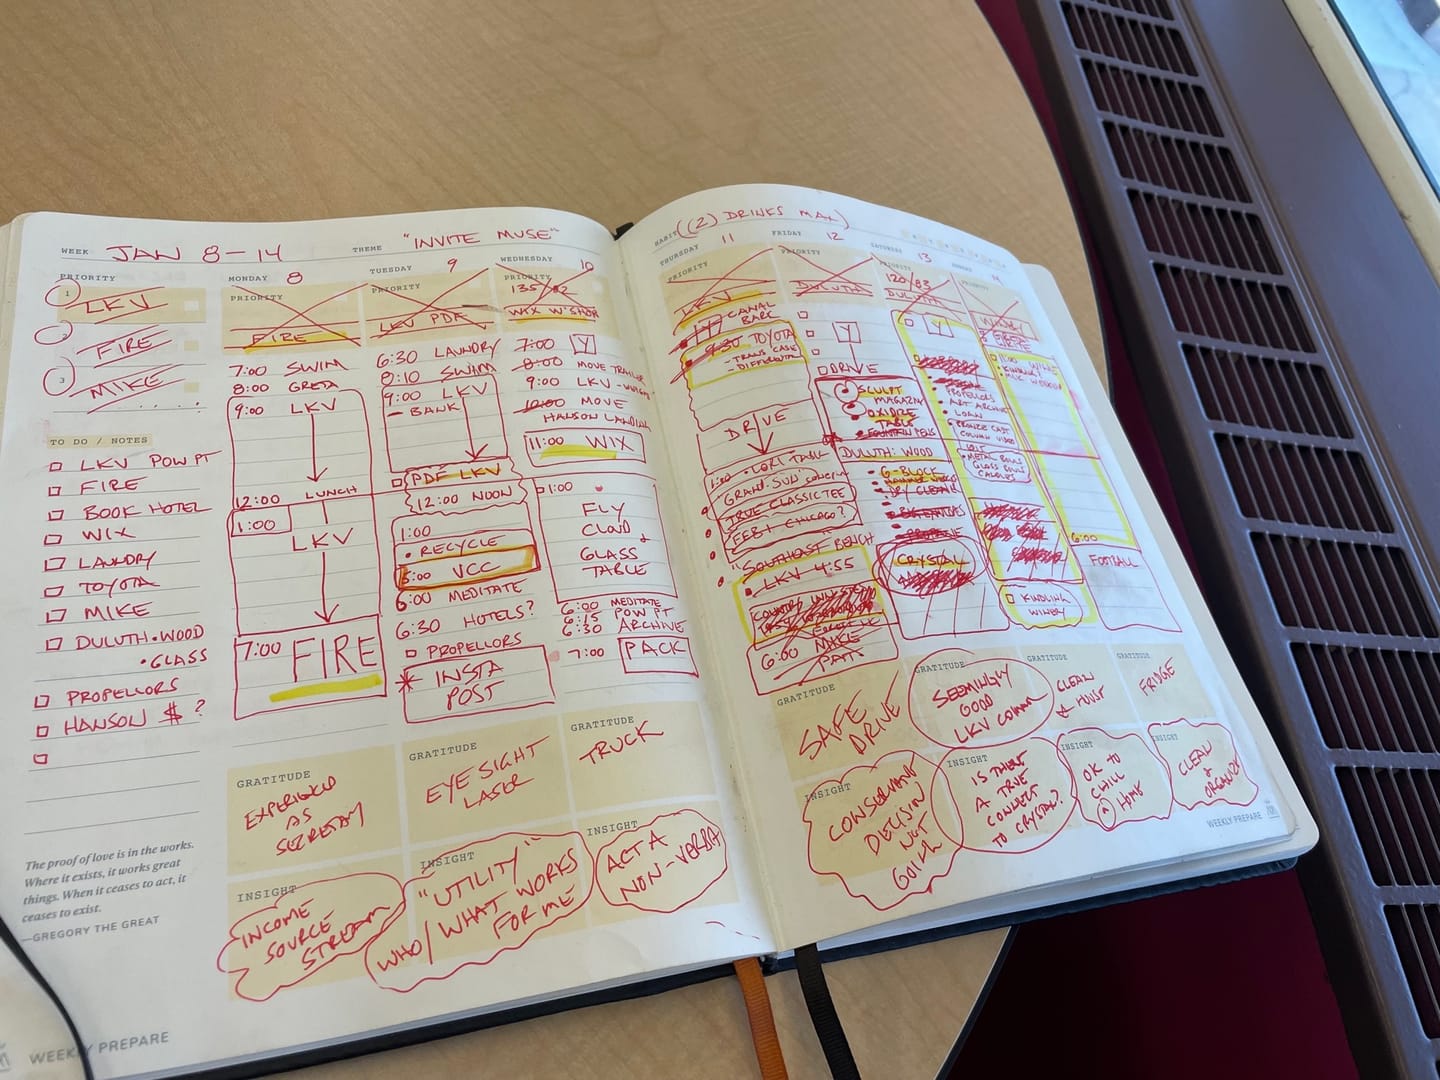 WEEK JAN 8-14
THEME "INVITE MUSE"
PRIORITY
1 LKV
2 FIRE
3 MIKE
TO DO / NOTES
LKV POW PT
FIRE
BOOK HOTEL
WIX
LAUNDRY
TOYOTA
MIKE
DULUTH·WOOD
·GLASS
PROPELLORS
HANSON $ ?
The proof of love is in the works.
Where it exists, it works great
things. When it ceases to act, it
ceases to exist.
—GREGORY THE GREAT
WEEKLY PREPARE
MONDAY 8
PRIORITY
FIRE
7:00 SWIM
8:00 GRETA
9:00 LKV
12:00 LUNCH
1:00
LKV
7:00 FIRE
GRATITUDE
EXPERIENCED
AS
INSIGHT
INCOME
SOURCE
STREAM
TUESDAY 9
PRIORITY
LKV PDF
6:30 LAUNDRY
8:10 SWIM
9:00 LKV
- BANK
PDF LKV
12:00 NOON
1:00
• RECYCLE
5:00 VCC
6:00 MEDITATE
6:30 HOTELS?
PROPELLORS
* INSTA
POST
GRATITUDE
EYE SIGHT
LASER
INSIGHT
"UTILITY"
WHO/WHAT WORKS
FOR ME
WEDNESDAY 10
PRIORITY
WIX W'SHOP
7:00 Y
8:00 MOVE
9:00 LKV
10:00 MOVE
HANSON LANDING
11:00 WIX
1:00
FLY
CLOUD
&
GLASS
TABLE
6:00 MEDITATE
6:15 POW PT
6:30 ARCHIVE
7:00 PACK
GRATITUDE
TRUCK
INSIGHT
ACT A
NON-VERBA
HABIT ((2) DRINKS MAX)
THURSDAY 11
PRIORITY
LKV
Y CANAL
BARC
9:30 TOYOTA
- TRANS CASE
- DIFFERENTIAL
DRIVE
1:00 • LORI TASK
TRUE CLASSIC TEE
CHICAGO?
"SOUTHEAST BENCH
LKV 4:55
6:00
GRATITUDE
SAFE
DRIVE
INSIGHT
CONSERVANT
DECISION
NOT
FRIDAY 12
PRIORITY
DULUTH
Y
DRIVE
SCULPT
MAGAZINE
OXIDIZE
TABLE
• FOUNTAIN PENS
DULUTH: WOOD
• G-BLOCK
CRYSTAL
GRATITUDE
SEEMINGLY
GOOD
LKV COMM
INSIGHT
IS THERE
A TRUE
CONNECT
TO CRYSTAL?
SATURDAY 13
PRIORITY
120/83
DULUTH
Y
PROPELLORS
• ART ARCHIVE
• LOAN
• BRONZE CAST
COLUMN VIDEO
METAL BOWLS
GLASS BOWLS
CANDLES
KINDLING
WINERY
GRATITUDE
CLEAN
& HOUSE
INSIGHT
OK TO
CHILL
@ HOME
SUNDAY 14
PRIORITY
6:00
FOOTBALL
GRATITUDE
FRIDGE
INSIGHT
CLEAN
&
ORGANIZE
WEEKLY PREPARE